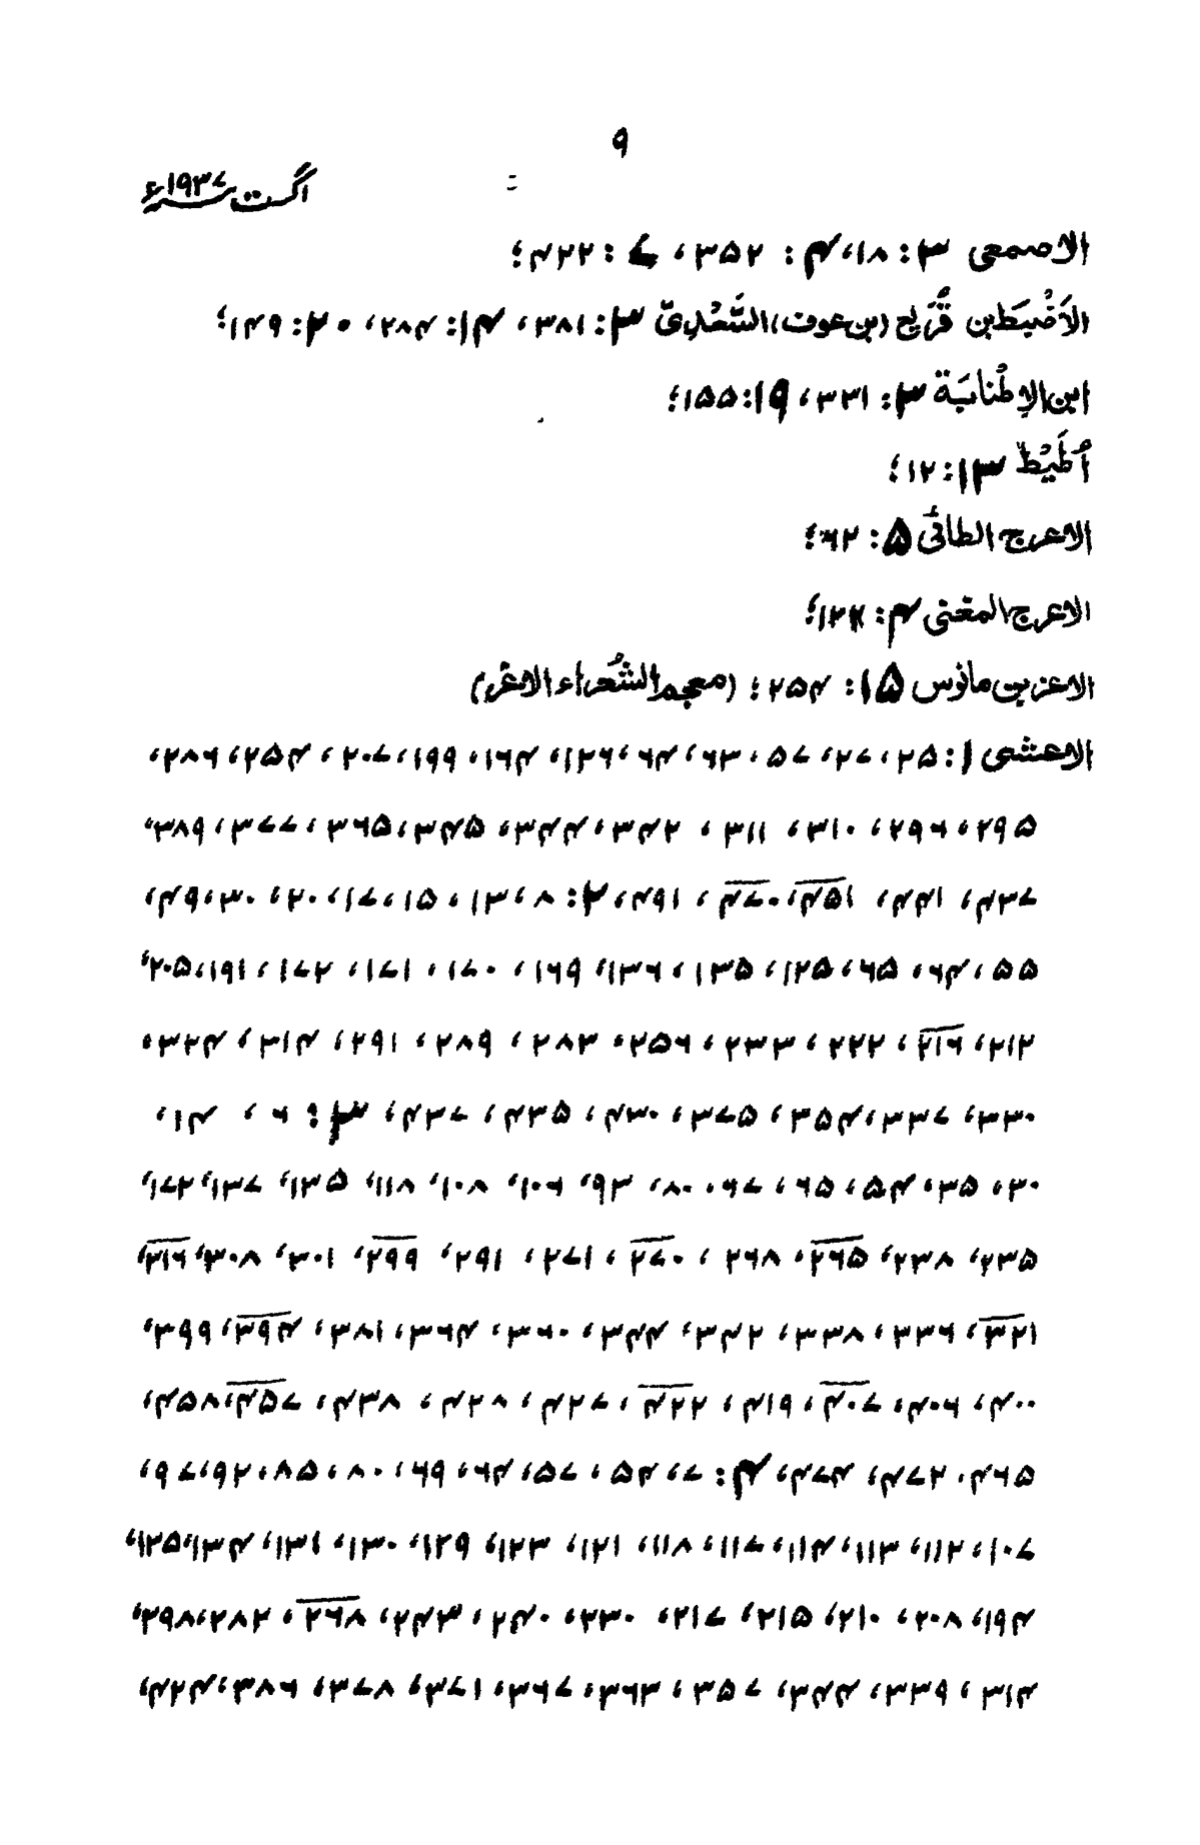 ۹
اگست ۱۹۳۷ء
الاصمعی ۳: ۱۸، ۴: ۳۵۲، ۷: ۴۲۲؛
الاَضْبَطُ بن قُرَیع (بن عوف) السَّعْدِیّ ۳: ۳۸۱، ۱۴: ۲۸۴، ۲۰: ۱۴۹؛
ابن الاِطْنابَة ۳: ۳۳۱، ۱۹: ۱۵۵؛
اُطَیْط ۱۳: ۱۲؛
الاعرج الطائی ۵: ۶۲؛
الاعرج المعنی ۴:
الاعز بن مانوس ۱۵: ۲۵۴؛ (معجم الشُعراء الاغر)
الاعشی ۱: ۲۵، ۲۷، ۵۷، ۶۳، ۶۴، ۱۲۶، ۱۶۴، ۱۹۹، ۲۰۷، ۲۵۴، ۲۸۶،
۲۹۵، ۲۹۶، ۳۱۰، ۳۱۱، ۳۴۲، ۳۴۴، ۳۴۵، ۳۶۵، ۳۷۷، ۳۸۹،
۴۳۷، ۴۴۱، ۴۵۱، ۴۷۰، ۴۹۱، ۲: ۷، ۱۳، ۱۵، ۱۷، ۲۰، ۳۰، ۴۹،
۵۵، ۶۴، ۶۵، ۱۲۵، ۱۳۵، ۱۳۶، ۱۶۹، ۱۷۰، ۱۷۱، ۱۷۲، ۱۹۱، ۲۰۵،
۲۱۲، ۲۱۶، ۲۲۲، ۲۳۳، ۲۵۶، ۲۸۳، ۲۸۹، ۲۹۱، ۳۱۴، ۳۲۴،
۳۳۰، ۳۳۷، ۳۵۴، ۳۷۵، ۴۳۰، ۴۳۵، ۴۳۷، ۳: ۶، ۱۴،
۳۰، ۳۵، ۵۴، ۵۶، ۶۷، ۸۰، ۹۳، ۱۰۶، ۱۰۸، ۱۱۸، ۱۳۵، ۱۳۷، ۱۷۲،
۲۳۵، ۲۳۸، ۲۶۵، ۲۶۸، ۲۷۰، ۲۷۱، ۲۹۱، ۲۹۹، ۳۰۱، ۳۰۸، ۲۱۶،
۳۲۱، ۳۳۶، ۳۳۸، ۳۴۲، ۳۴۴، ۳۶۰، ۳۶۴، ۳۸۱، ۳۹۴، ۳۹۹،
۴۰۰، ۴۰۶، ۴۰۷، ۴۱۹، ۴۲۲، ۴۲۷، ۴۲۸، ۴۳۸، ۴۵۷، ۴۵۸،
۴۶۵، ۴۷۲، ۴۷۴، ۴: ۷، ۵۴، ۵۷، ۶۴، ۶۹، ۸۰، ۸۵، ۹۲، ۹۷،
۱۰۷، ۱۱۲، ۱۱۳، ۱۱۴، ۱۱۷، ۱۱۸، ۱۲۱، ۱۲۳، ۱۲۹، ۱۳۰، ۱۳۱، ۱۳۴، ۱۲۵،
۱۹۴، ۲۰۸، ۲۱۰، ۲۱۵، ۲۱۷، ۲۳۰، ۲۴۰، ۲۴۳، ۲۶۸، ۲۸۲، ۲۹۸،
۳۱۴، ۳۳۹، ۳۴۴، ۳۵۷، ۳۶۳، ۳۶۷، ۳۷۱، ۳۷۸، ۳۸۶، ۴۲۴،